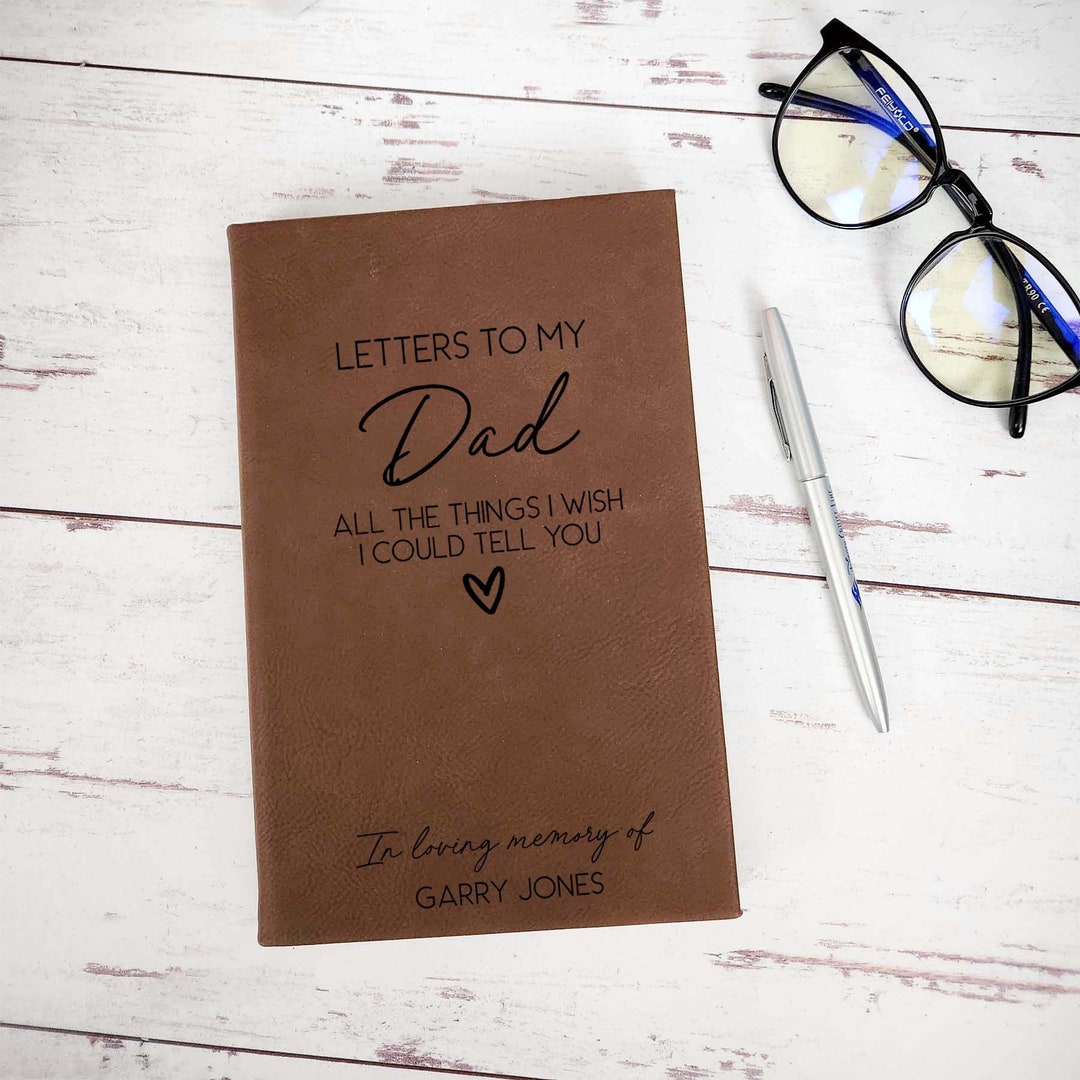 LETTERS TO MY
Dad
ALL THE THINGS I WISH
I COULD TELL YOU
In loving memory of
GARRY JONES
FEIYOLD®
TR90 CE